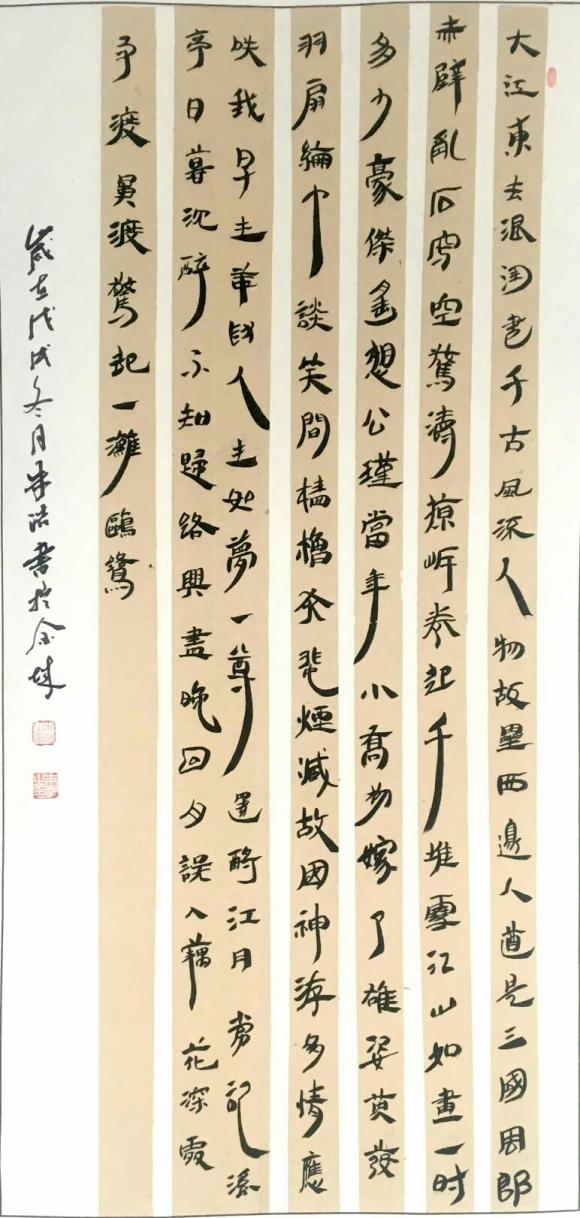 大江東去浪淘尽千古風流人物故壘西邊人道是三國周郎
赤壁亂石穿空驚濤掠岸卷起千堆雪江山如畫一时
多少豪傑遙想公瑾當年小喬初嫁了雄姿英發
羽扇綸巾談笑間檣櫓灰飛煙滅故国神游多情應
咲我早生華髮人生如夢一尊還酹江月常記溪
亭日暮沈醉不知歸路興盡晚回舟誤入藕花深處
争渡争渡驚起一灘鷗鷺
歲在戊戌冬月朱浩書於金城